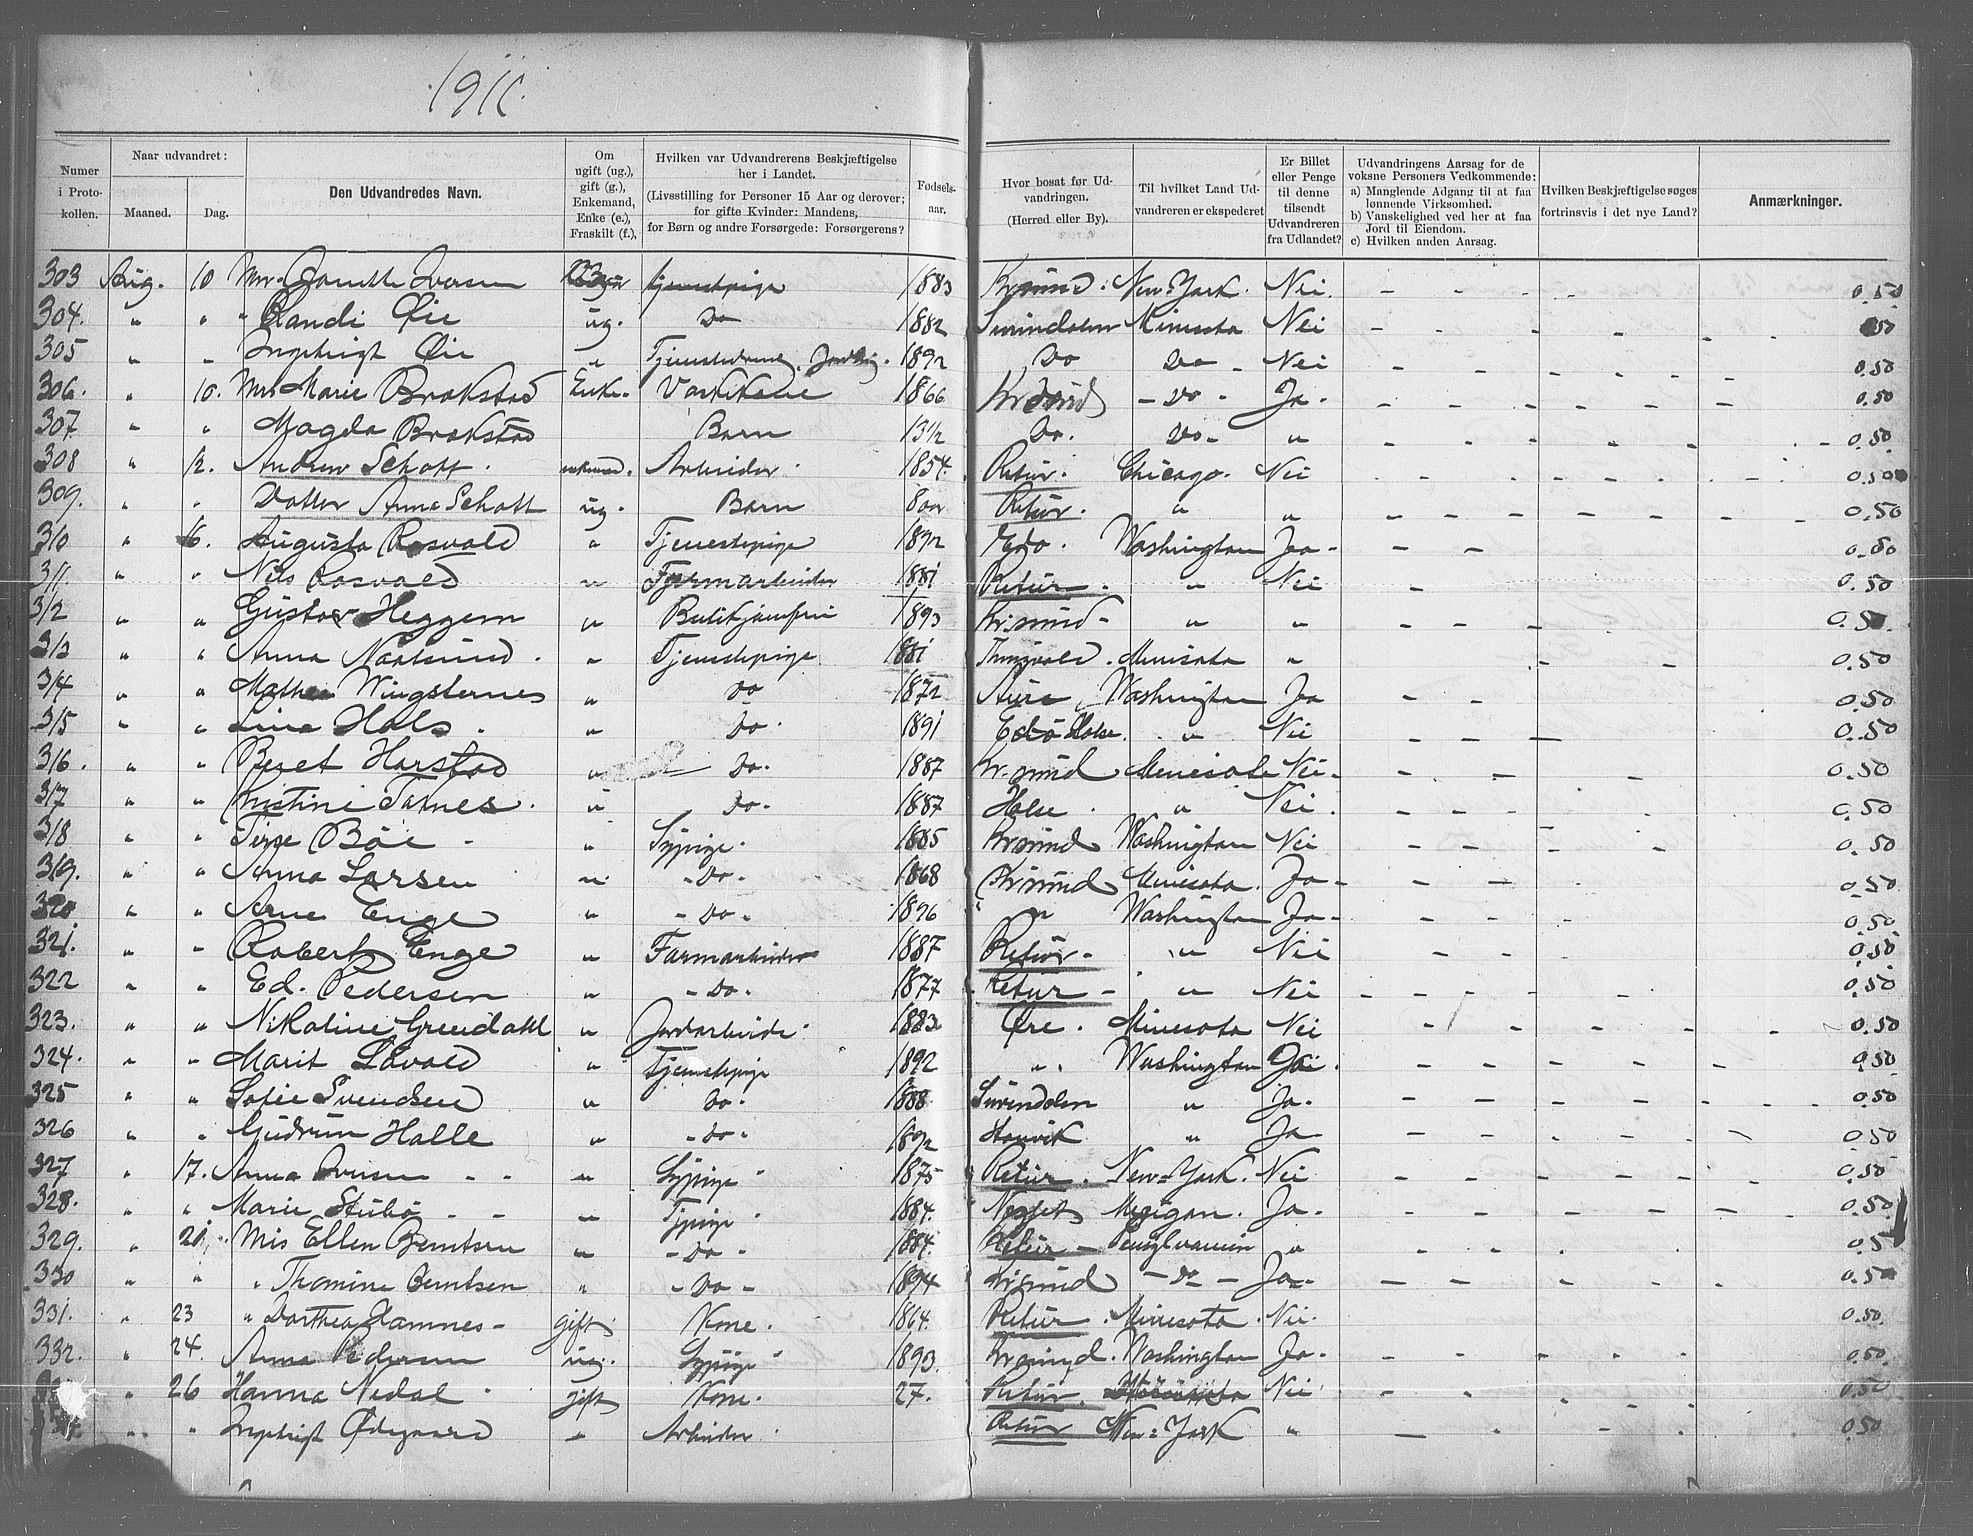 1911.
Numer i Protokollen.
Naar udvandret:
Maaned. Dag.
Den Udvandredes Navn.
Om ugift (ug.), gift (g.), Enkemand, Enke (e.), Fraskilt (f.),
Hvilken var Udvandrerens Beskjæftigelse her i Landet.
(Livsstilling for Personer 15 Aar og derover; for gifte Kvinder: Mandens, for Børn og andre Forsørgede: Forsørgerens?
Fødselsaar.
Hvor bosat før Udvandringen.
(Herred eller By).
Til hvilket Land Udvandreren er ekspederet
Er Billet eller Penge til denne tilsendt Udvandreren fra Udlandet?
Udvandringens Aarsag for de voksne Personers Vedkommende:
a) Manglende Adgang til at faa lønnende Virksomhed.
b) Vanskelighed ved her at faa Jord til Eiendom.
c) Hvilken anden Aarsag.
Hvilken Beskjæftigelse søges fortrinsvis i det nye Land?
Anmærkninger.
303 Aug. 10 Iversen ug Tjenestepige 1883 Kr.sund. New-York. Nei. - - - - 0.50
304. " " " Randi Øie ug. Do 1882 Surindalen Minesota Nei - - - - 50
305 " " Ingebrigt Øie " 1892 Do Do - Nei - - - - 0.50
306. " 10. Mrs Marie Brokstad Enke. 1866 Kr.sund - Do - Ja - - - - - 0.50
307. " " Magda Brokstad Barn 13 1/2 Do. Do - " - - - - 0.50
308 " 12. Andrew Schott. enkemd. Arbeider 1854. Retur. Chicago. Nei - - - - 0.50
309. " " Datter Anna Schott ug. Barn 8 aar Retur. " " - - - - 0.50
310 " 16. Augusta Rosvold " Tjenestepige 1892 Edø. Washington Ja - - - 0.50
311. " " Nils Rosvold " Farmarbeider 1881 Retur. " Nei - 0.50
312 " " Gustav Heggem " 1893 Kr.sund - " " - - - 0.50.
313 " " Anna Naalsund. " Tjenestepige 1881 Minisota " - - 0.50
314 " " Wingsternes " Do 1872 Aure Washington Ja - - 0.50
315 " " Line Hals. " Do. 1891 Edø Halse. " Nei - - - 0.50
316. " " Beret Harstad " Do. 1887 Kr.sund Minesota Nei - - - - 0.50
317 " " Kristine Tarnes. " Do. 1887 Halse. " Nei. - - - 0.50
318 " " Bøe - " Sypige. 1885 Kr.sund Washington Nei - - - 0.50
319. " " Anna Larsen " - Do - 1868 Kr.sund Minesota. Ja - - - 0.50
320 " " Arne Enge " - Do - 1896 " " Washington Ja - 0.50
321. " " Robert Enge " Farmarbeider 1887 Retur - " Nei - - - - 0.50
322 " " Ed. Pedersen " - Do - 1877 Retur - " Nei - - - - 0.50
323. " " Nikoline Grendahl " Jordarbeide 1883 Øre. Minesota Nei - - - - 0.50
324. " " Marit Løvold " Tjenestepige 1892 " Washington - - - - 0.50
325 " " Sofie Svendsen " Do - 1888 Surendalen " Ja - - - - 0.50
326 " " Gudrun Halle " - Do - 1892 Stanvik " Ja - - - - 0.50
327 " 17. Anna Iversen - - " Sypige 1875 Retur. New-York. Nei - - - - 0.50
328. " " Marie Stubø - - " 1884. Nesset Megigan. Ja - - - - 0.50
329. " 21. Mis Ellen Berntsen " - Do - 1884. Retur - " - - - 0.5
330 " " " Thomine Berntsen " - Do - 1894 Kr.sund - Do - Ja - - - - 0.50
331. " 23 " Dorthea Hamnes - gift Kone. 1864. Retur. Minesota. Nei. 0.50
332. " 24. Anna Pedersen ug. Sypige 1893. Kr.sund. Washington Ja - - - - 0.50.
" 26 Hanna Nedal gift Kone. 27. Retur. Nei - - - - 0.50
" " Ingebrigt Ødegaard " Arbeider Retur New-York " - - - - 0.50